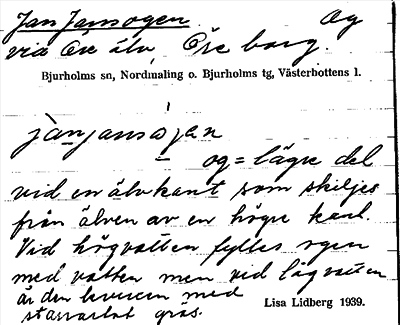 Jan Jansogen. Og
via Öre älv, Öre borg.
Bjurholms sn, Nordmaling o. Bjurholms tg, Västerbottens l.
janjansøgen
og = lägre del
vid en älvkant som skiljes
från älven av en högre kant.
Vid högvatten fylles ogen
med vatten men ved lågvatten
är den bevuxen med
starrartat gräs.
Lisa Lidberg 1939.